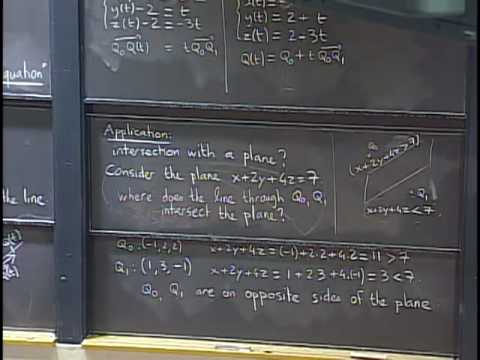 y(t)-2 = t
z(t)-2 = -3t
Q₀Q(t) = tQ₀Q₁
y(t) = 2 + t
z(t) = 2-3t
Q(t) = Q₀ + tQ₀Q₁
equation"
the line
Application:
intersection with a plane?
Consider the plane x+2y+4z=7
where does the line through Q₀, Q₁
intersect the plane?
Q₀
(x+2y+4z>7)
Q₁
x+2y+4z<7
Q₀: (-1,2,2) x+2y+4z = (-1)+2.2+4.2 = 11 > 7
Q₁: (1,3,-1) x+2y+4z = 1+2.3+4.(-1) = 3 < 7.
Q₀, Q₁ are on opposite sides of the plane